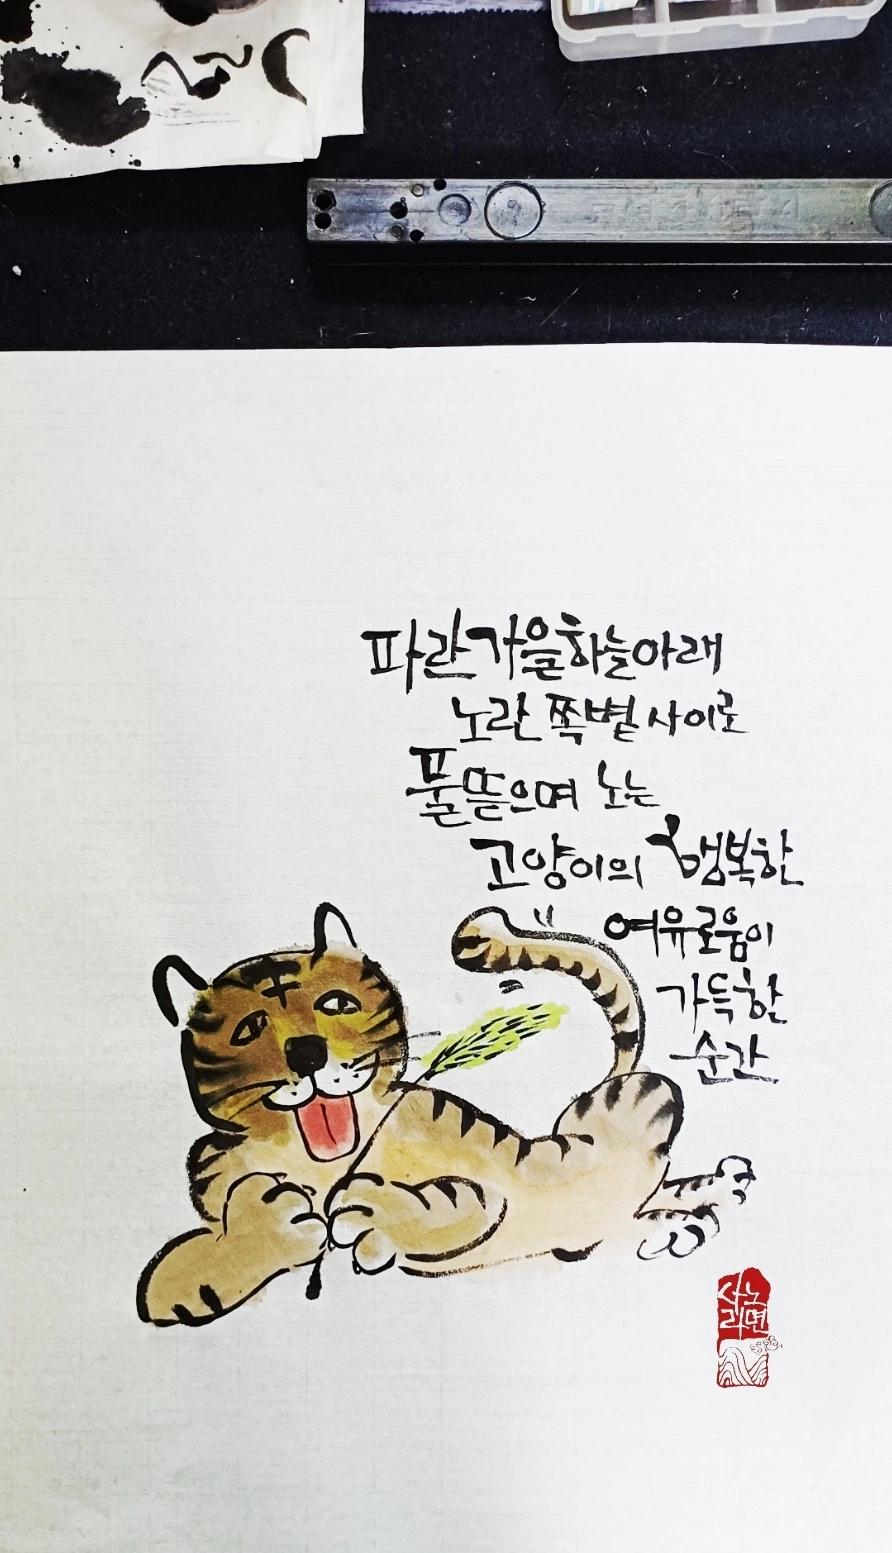 파란 가을 하늘 아래
노란 쪽볕 사이로
풀 뜯으며 노는
고양이의 행복한
여유로움이
가득한
순간